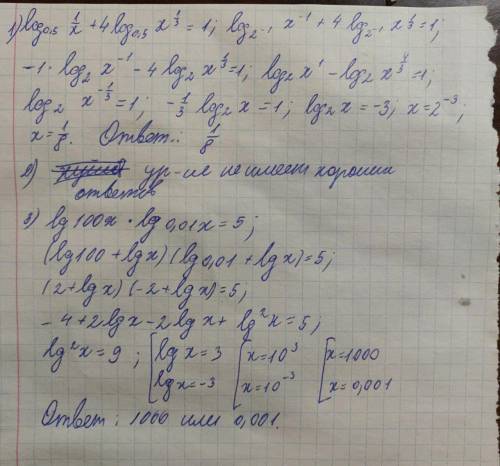 1) log₀,₅ 1/x + 4 log₀,₅ x^(1/3) = 1; log₂₋₁ x⁻¹ + 4 log₂₋₁ x^(1/3) = 1;
-1 · log₂ x⁻¹ - 4 log₂ x^(1/3) = 1; log₂ x¹ - log₂ x^(4/3) = 1;
log₂ x^(-1/3) = 1; -1/3 log₂ x = 1; log₂ x = -3; x = 2⁻³;
x = 1/8. Ответ: 1/8
2) ур-ие не имеет хороших
ответов
3) lg100x · lg0,01x = 5;
(lg100 + lgx)(lg0,01 + lgx) = 5;
(2 + lgx)(-2 + lgx) = 5;
-4 + 2lgx - 2lgx + lg²x = 5;
lg²x = 9; [lgx = 3 [x = 10³ [x = 1000
lgx = -3 x = 10⁻³ x = 0,001
Ответ: 1000 или 0,001.